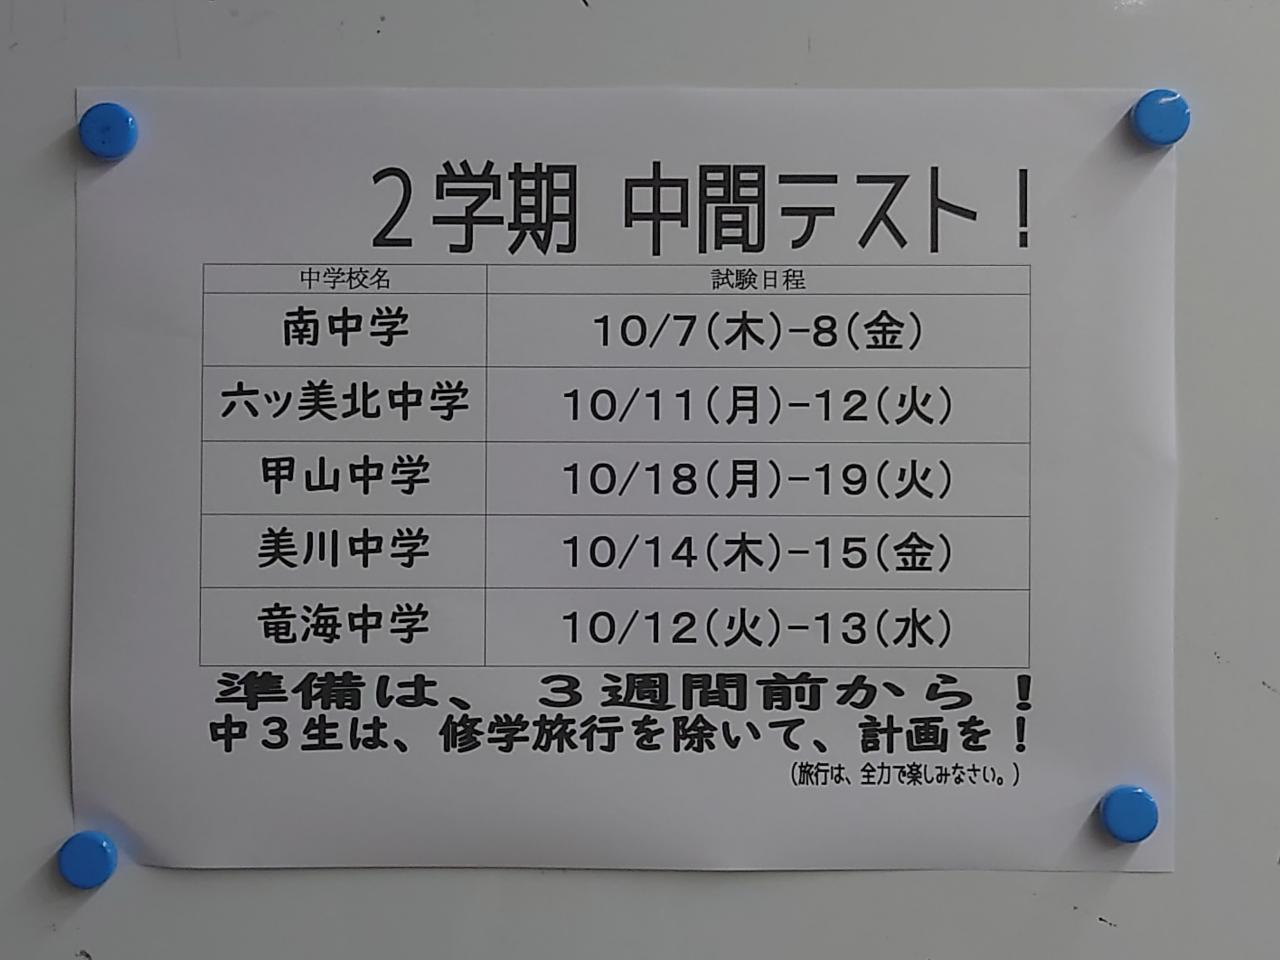 2学期 中間テスト!
中学校名 試験日程
南中学 10/7(木)-8(金)
六ッ美北中学 10/11(月)-12(火)
甲山中学 10/18(月)-19(火)
美川中学 10/14(木)-15(金)
竜海中学 10/12(火)-13(水)
準備は、3週間前から!
中3生は、修学旅行を除いて、計画を!
(旅行は、全力で楽しみなさい。)